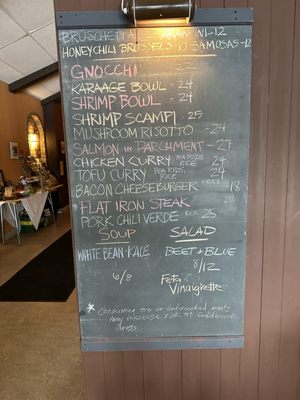 BRUSCHETTA ARANCINI-12
HONEY CHILI BRUSSELS-10 SAMOSAS-12
GNOCCHI 22
KARAAGE BOWL - 24
SHRIMP BOWL - 24
SHRIMP SCAMPI - 25
MUSHROOM RISOTTO - 24
SALMON IN PARCHMENT - 27
CHICKEN CURRY PEA PODS RICE 24
TOFU CURRY PEA PODS RICE 24
BACON CHEESEBURGER FRIES 18
FLAT IRON STEAK 28
PORK CHILI VERDE RICE 25
SOUP SALAD
WHITE BEAN KALE BEET & BLUE
6/8 8/12
Feta
Vinaigrette
* Consuming raw or undercooked meats
may increase risk of foodborne
illness